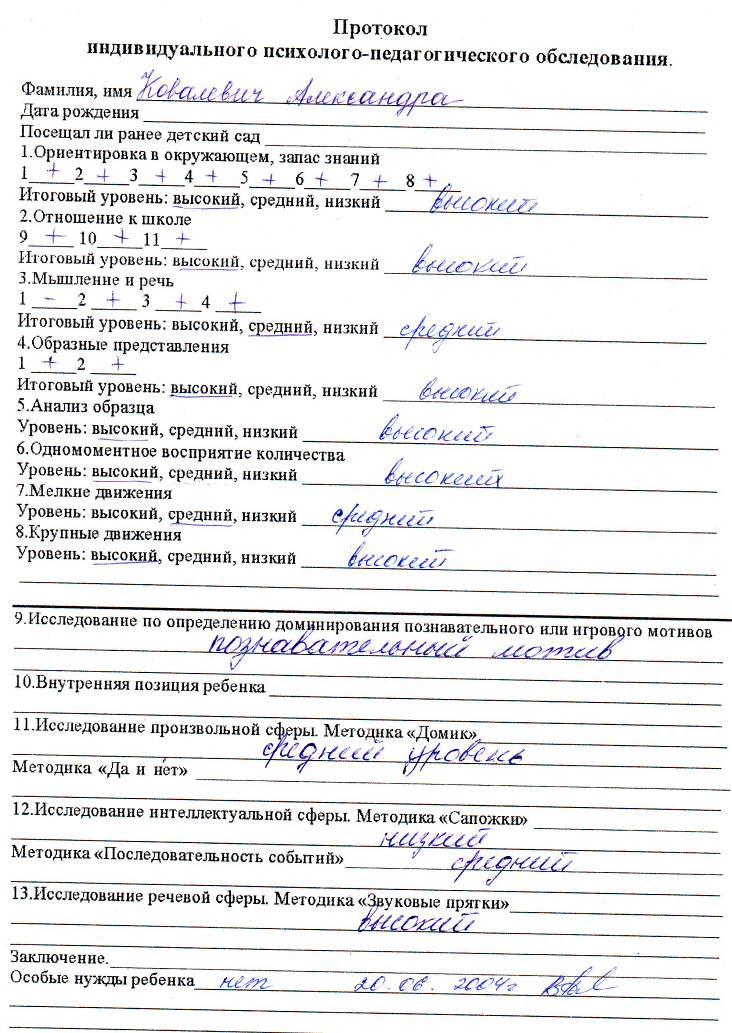 Протокол
индивидуального психолого-педагогического обследования.
Фамилия, имя Ковалевич Александра
Дата рождения
Посещал ли ранее детский сад
1.Ориентировка в окружающем, запас знаний
1 + 2 + 3 + 4 + 5 + 6 + 7 + 8 +
Итоговый уровень: высокий, средний, низкий высокий
2.Отношение к школе
9 + 10 + 11 +
Итоговый уровень: высокий, средний, низкий высокий
3.Мышление и речь
1 - 2 + 3 + 4 +
Итоговый уровень: высокий, средний, низкий средний
4.Образные представления
1 + 2 +
Итоговый уровень: высокий, средний, низкий высокий
5.Анализ образца
Уровень: высокий, средний, низкий высокий
6.Одномоментное восприятие количества
Уровень: высокий, средний, низкий высокий
7.Мелкие движения
Уровень: высокий, средний, низкий средний
8.Крупные движения
Уровень: высокий, средний, низкий высокий
9.Исследование по определению доминирования познавательного или игрового мотивов
познавательный мотив
10.Внутренняя позиция ребенка
11.Исследование произвольной сферы. Методика «Домик»
средний уровень
Методика «Да и нет»
12.Исследование интеллектуальной сферы. Методика «Сапожки»
низкий
Методика «Последовательность событий» средний
13.Исследование речевой сферы. Методика «Звуковые прятки»
высокий
Заключение.
Особые нужды ребенка нет 20.06.2004г